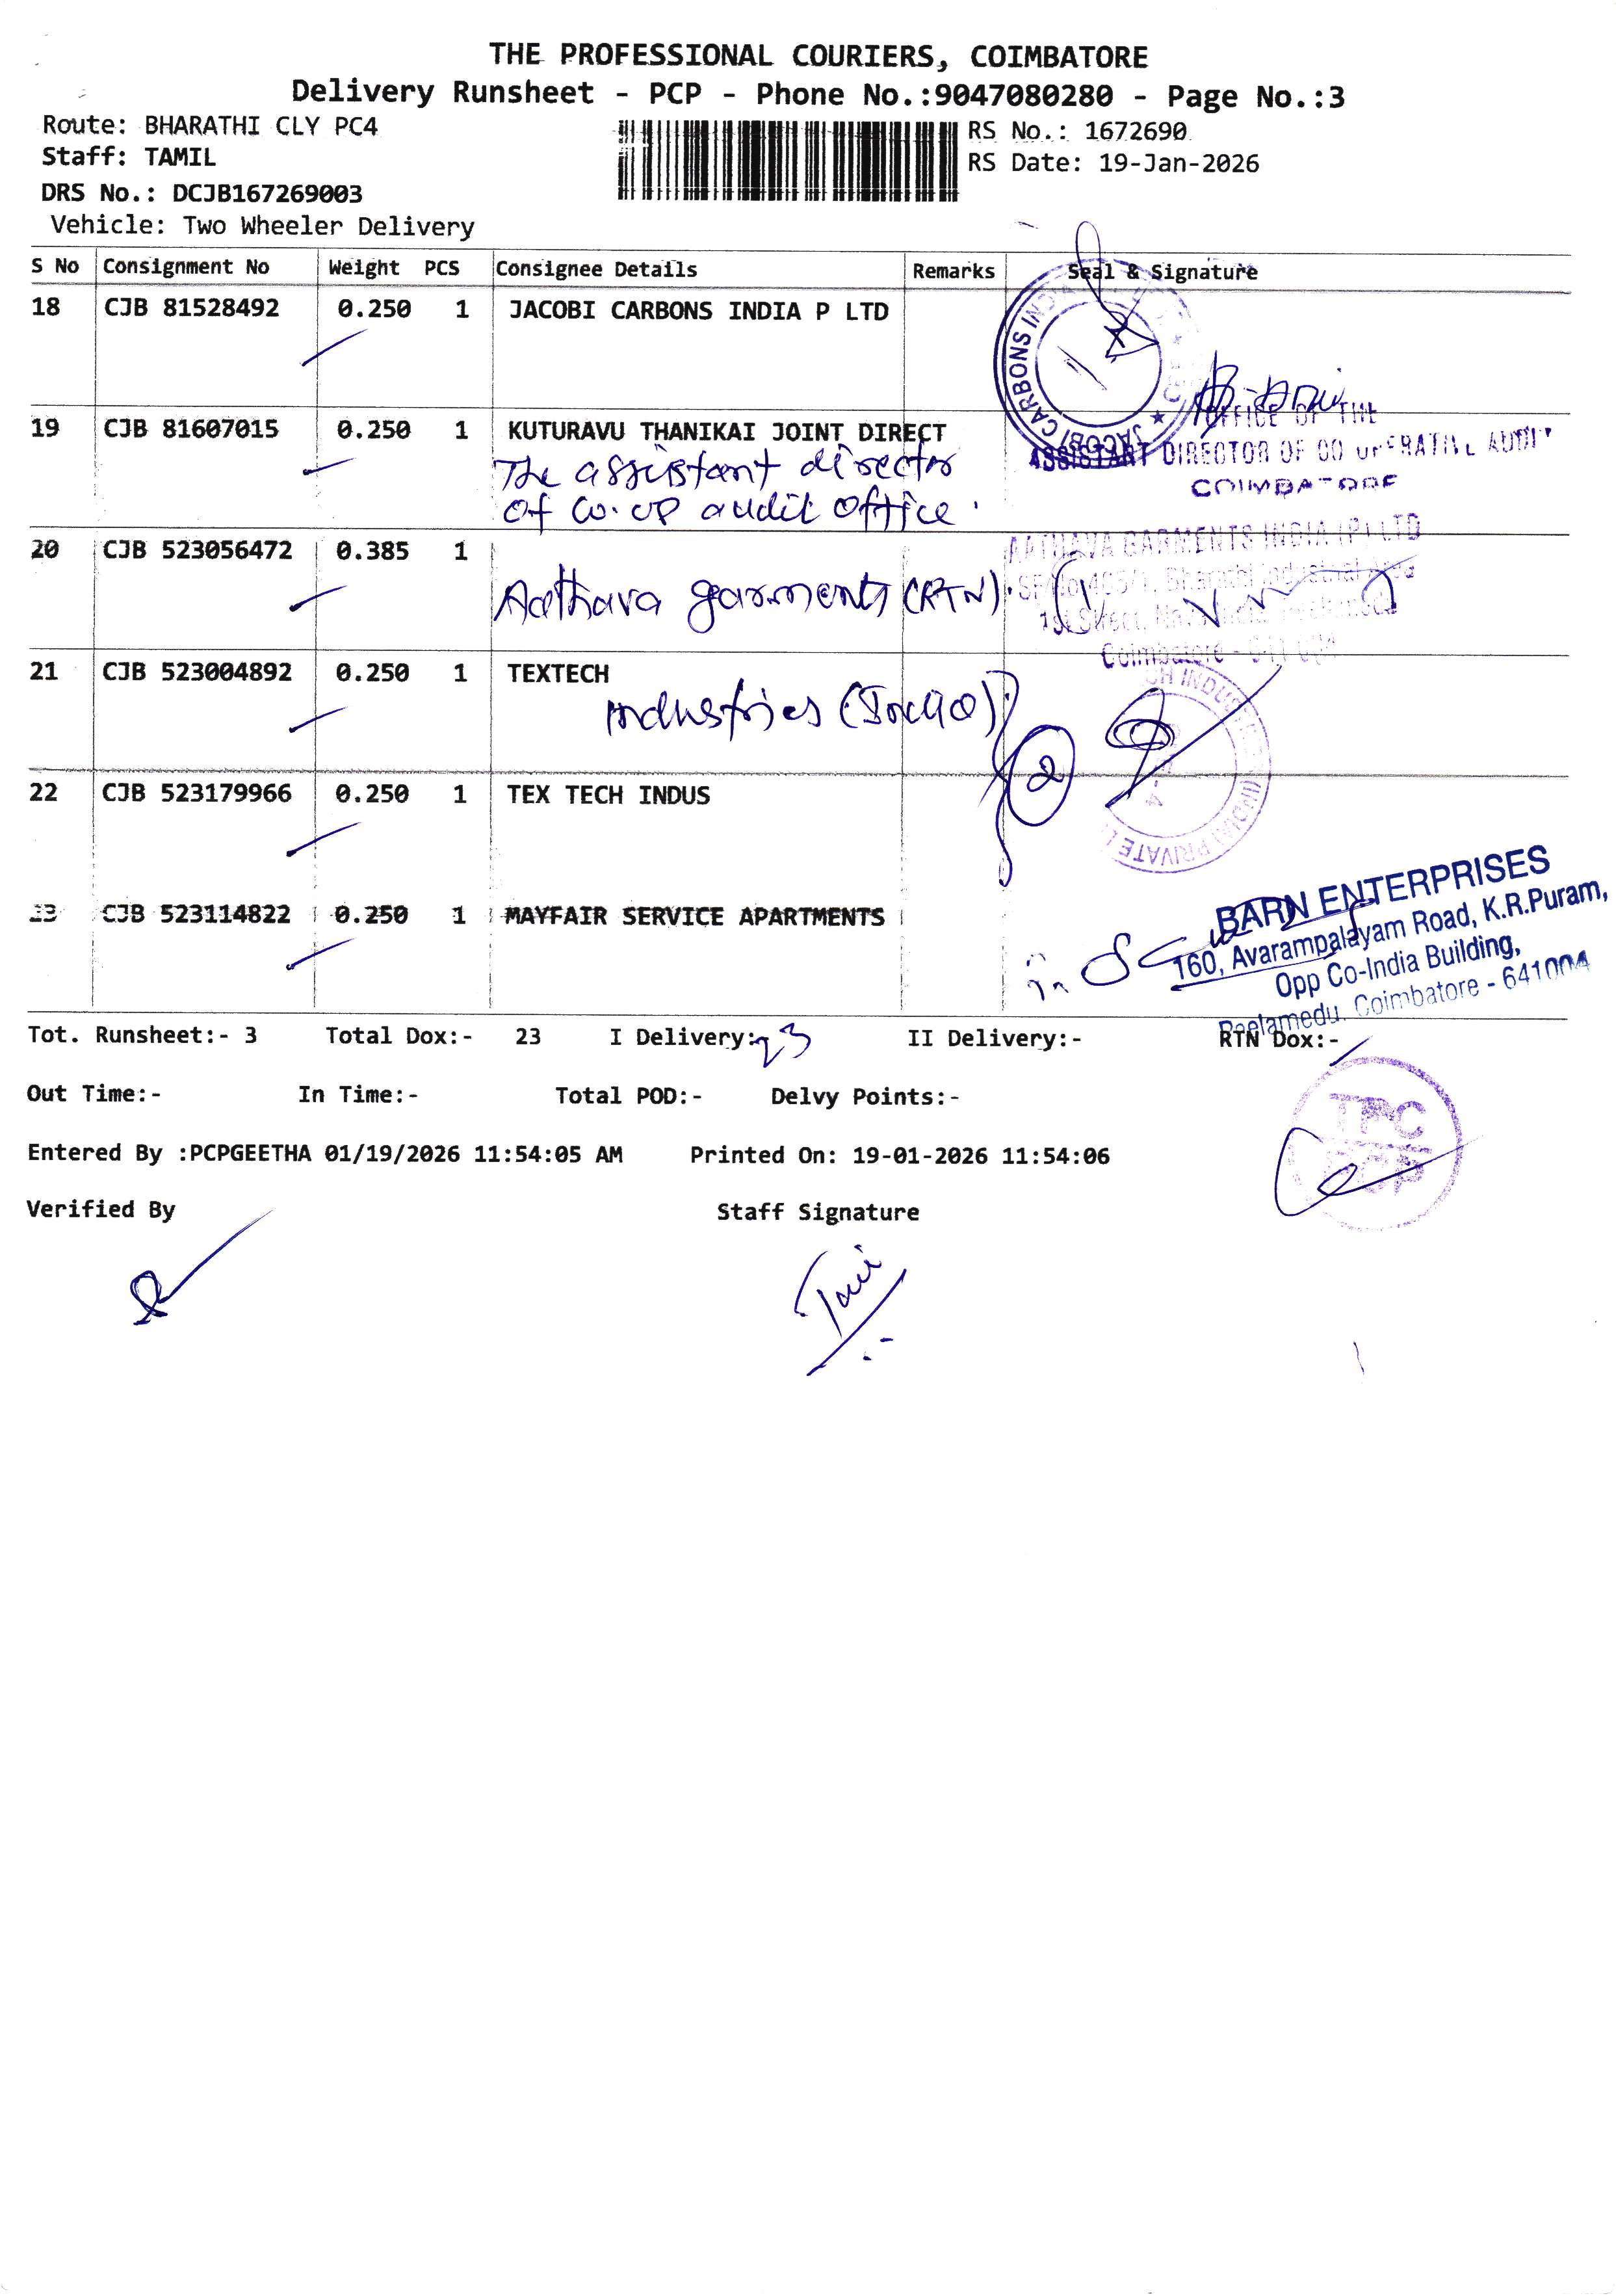 THE PROFESSIONAL COURIERS, COIMBATORE
Delivery Runsheet - PCP - Phone No.:9047080280 - Page No.:3
Route: BHARATHI CLY PC4
RS No.: 1672690
Staff: TAMIL
RS Date: 19-Jan-2026
DRS No.: DCJB167269003
Vehicle: Two Wheeler Delivery
S No Consignment No Weight PCS Consignee Details Remarks Seal & Signature
18 CJB 81528492 0.250 1 JACOBI CARBONS INDIA P LTD
JACOBI CARBONS INDIA
19 CJB 81607015 0.250 1 KUTURAVU THANIKAI JOINT DIRECT
The assistant director
of co.op audit office.
OFFICE OF THE
ASSISTANT DIRECTOR OF CO OPERATIVE AUDIT
COIMBATORE
20 CJB 523056472 0.385 1
Aathava garments (RTN).
AATHAVA GARMENTS INDIA (P) LTD
1st Street,
Coimbatore - 641 004
21 CJB 523004892 0.250 1 TEXTECH
industries (India)
2
22 CJB 523179966 0.250 1 TEX TECH INDUS
23 CJB 523114822 0.250 1 MAYFAIR SERVICE APARTMENTS
BARN ENTERPRISES
160, Avarampalayam Road, K.R.Puram,
Opp Co-India Building,
Peelamedu, Coimbatore - 641004
Tot. Runsheet:- 3 Total Dox:- 23 I Delivery:- 23 II Delivery:- RTN Dox:-
Out Time:- In Time:- Total POD:- Delvy Points:-
TPC
PCP
Entered By :PCPGEETHA 01/19/2026 11:54:05 AM Printed On: 19-01-2026 11:54:06
Verified By Staff Signature